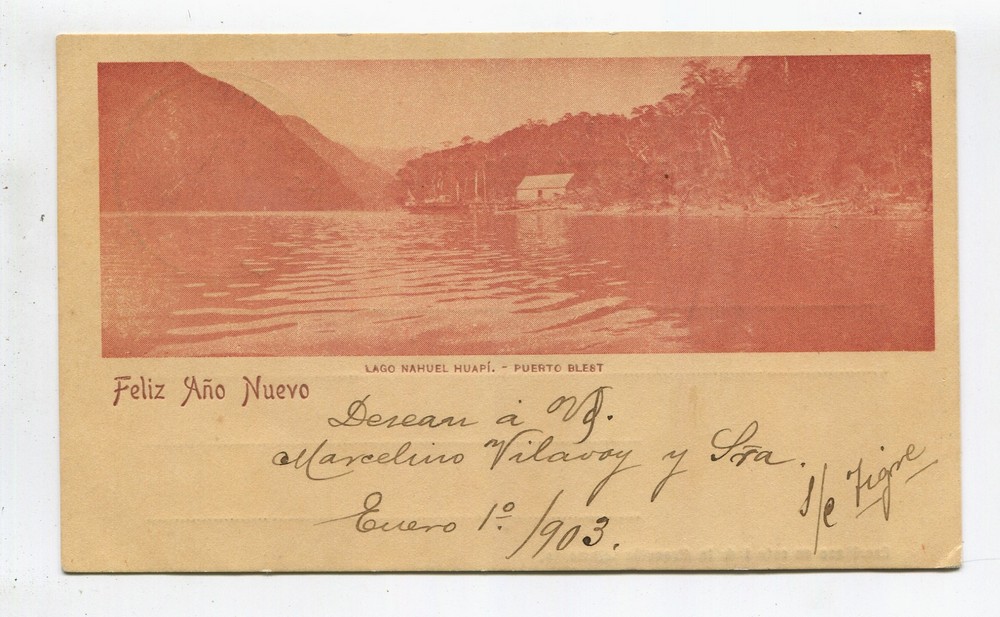 LAGO NAHUEL HUAPÍ. - PUERTO BLEST
Feliz Año Nuevo
Desean á Vd.
Marcelino Vilavoy y Sra.
Enero 1º/903.
s/c Tigre